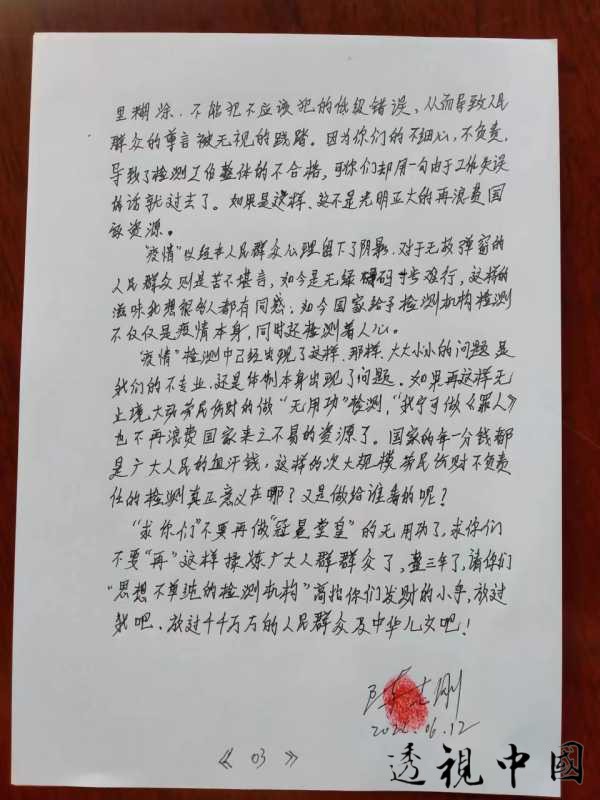 里糊涂、不能犯不应该犯的低级错误、从而导致人民
群众的尊言被无视的践踏。因为你们的不细心，不负责，
导致了检测工作整体的不合格，可你们却用一句由于工作失误
的话就过去了。如果是这样、这不是光明正大的再浪费国
家资源。
"疫情"以经书人民群众心理留下了阴影、对于无故弹窗的
人民群众则是苦不堪言，如今是无绿码寸步难行，这样的
滋味我想很多人都有同感；如今国家给予检测机构检测
不仅仅是疫情本身，同时还检测着人心。
"疫情"检测中已经出现了这样、那样、大大小小的问题是
我们的不专业、还是体制本身出现了问题、如果再这样无
止境大劳民伤财的做"无用功"检测，"我宁可做《罪人》
也不再浪费国家来之不易的资源了。国家的每一分钱都
是广大人民的血汗钱，这样的次大规模劳民伤财不负责
任的检测真正意义在哪？又是做给谁看的呢？
"求你们"不要再做"冠冕堂皇"的无用功了，求你们
不要"再"这样揉炼广大人群群众了，整三年了，请你们
"思想不单纯的检测机构"高抬你们发财的小手，放过
我吧、放过千千万万的人民群众及中华儿女吧！
志刚
2022.06.12
《 03 》
透視中國